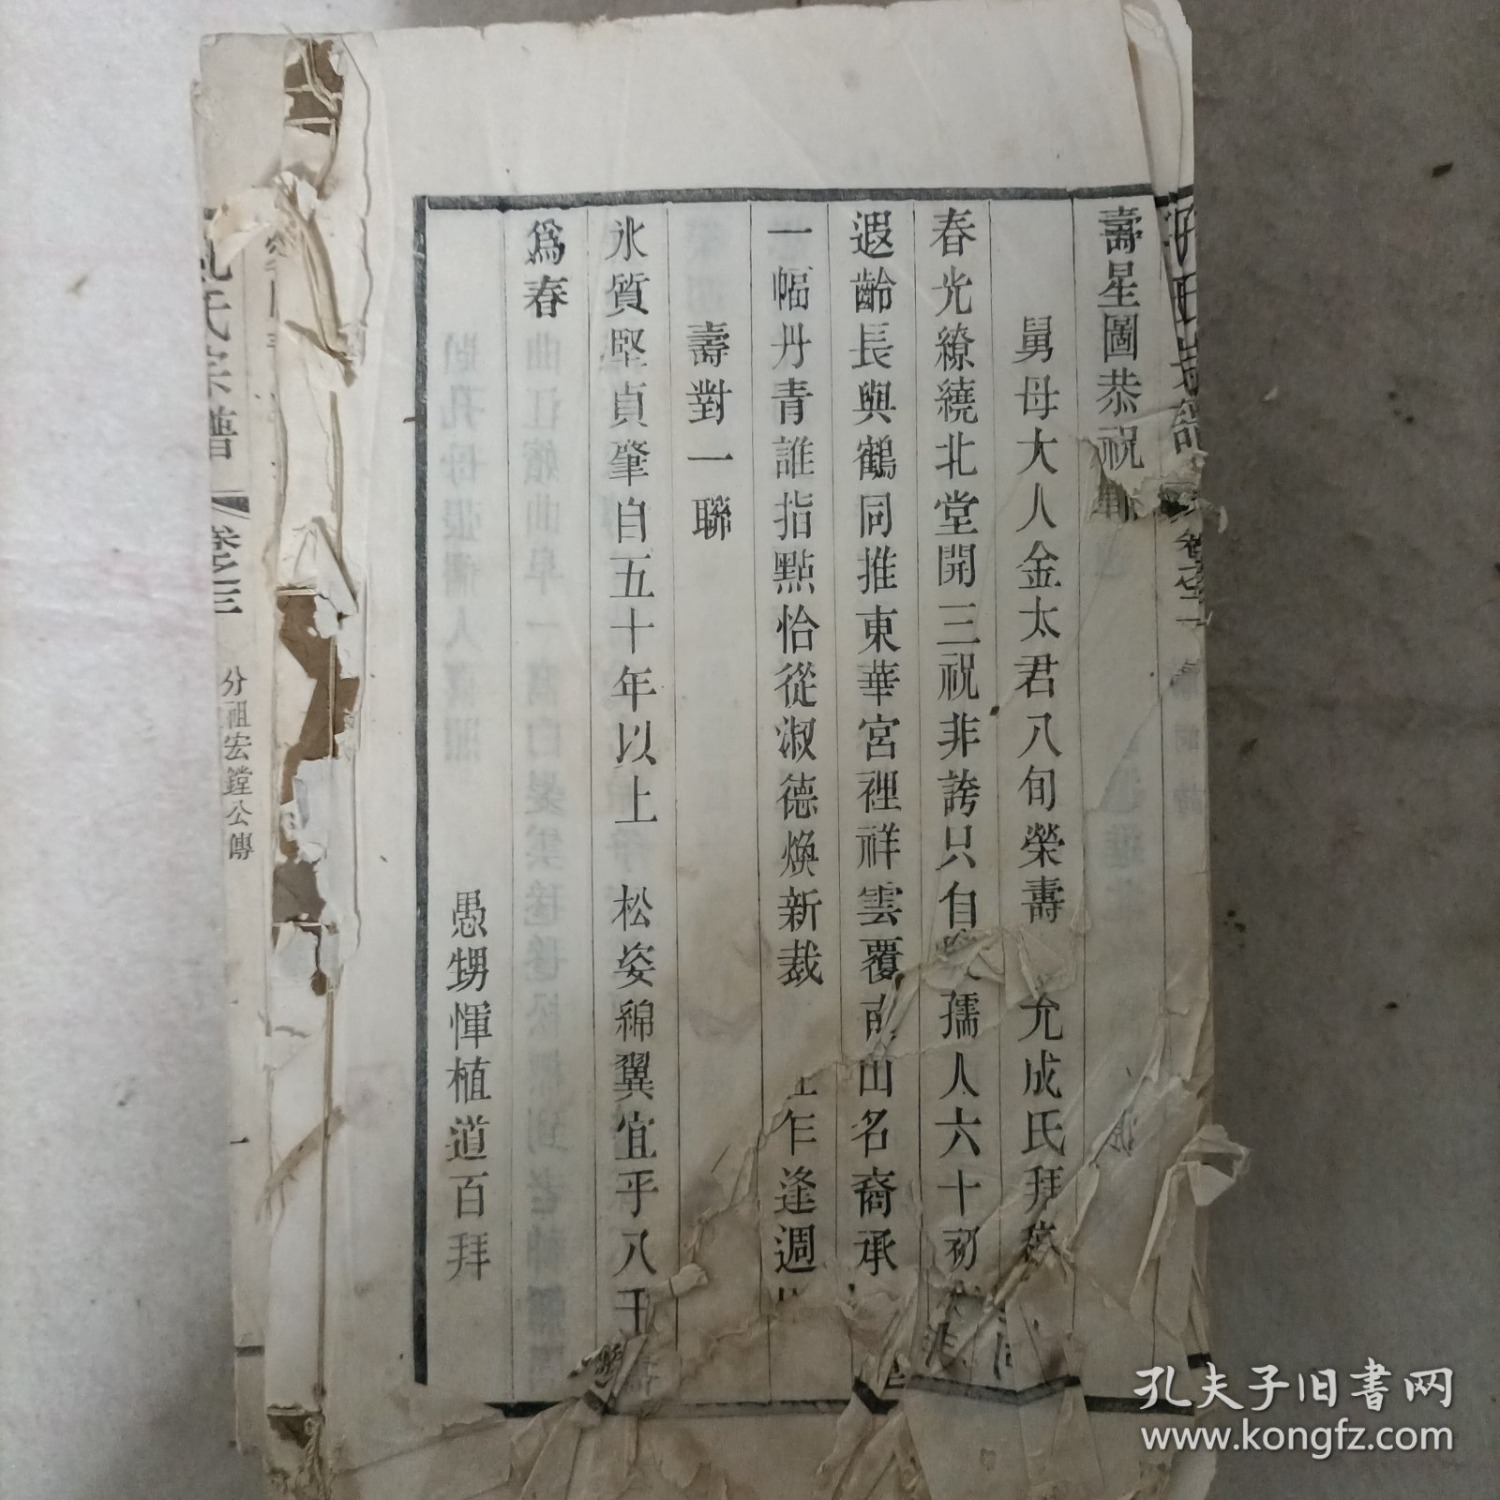 壽星圖恭祝
舅母大人金太君八旬榮壽 允成氏拜
春光繚繞北堂開三祝非誇只自 孺人六十初
遐齡長與鶴同推東華宮裡祥雲覆 山名裔承
一幅丹青誰指點恰從淑德煥新裁 乍逢週
壽對一聯
氷質堅貞肇自五十年以上 松姿綿翼宜乎八千
爲春
愚甥惲植道百拜
氏宗譜 卷之三 分祖宏鏜公傳 一
孔夫子旧書网
www.kongfz.com